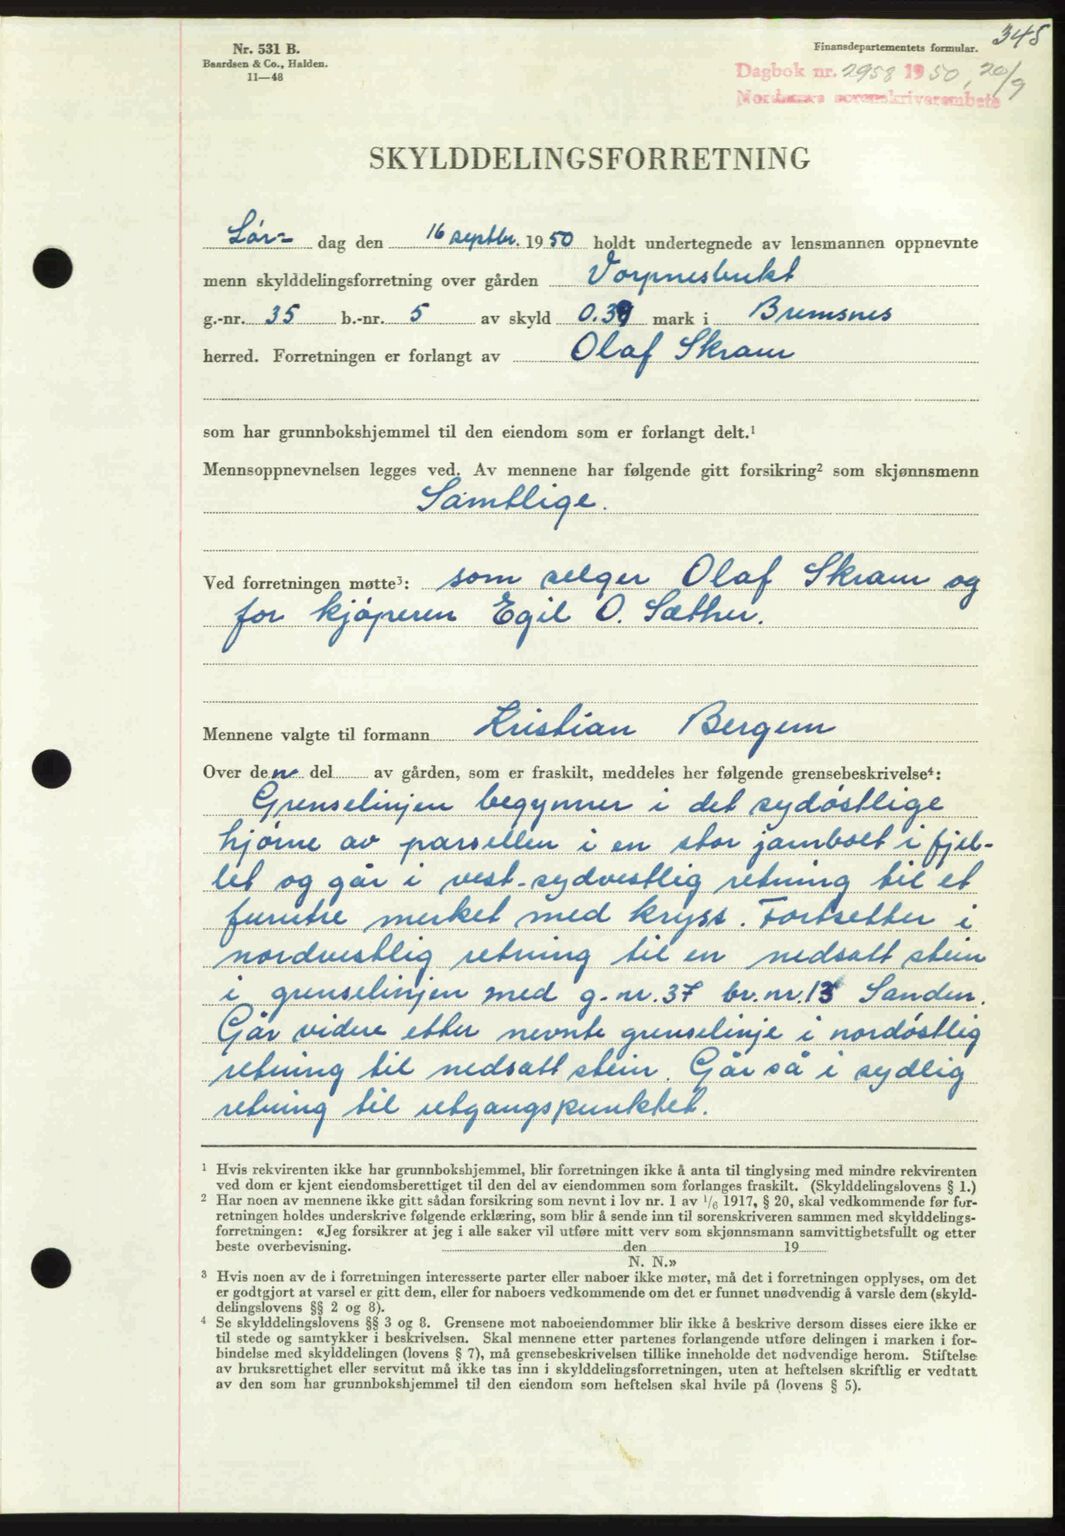 345
Nr. 531 B.
Baardsen & Co., Halden.
11—48
Finansdepartementets formular.
Dagbok nr. 2958 1950, 20/9
Nordmøre sorenskriverembete
SKYLDDELINGSFORRETNING
Lør- dag den 16 septbr. 1950 holdt undertegnede av lensmannen oppnevnte
menn skylddelingsforretning over gården Vorpnesbukt
g.-nr. 35 b.-nr. 5 av skyld 0.39 mark i Bremsnes
herred. Forretningen er forlangt av Olaf Skram
som har grunnbokshjemmel til den eiendom som er forlangt delt.¹
Mennsoppnevnelsen legges ved. Av mennene har følgende gitt forsikring² som skjønnsmenn
Samtlige.
Ved forretningen møtte³: som selger Olaf Skram og
for kjøperen Egil O. Sæther.
Mennene valgte til formann Kristian Bergem
Over denne del av gården, som er fraskilt, meddeles her følgende grensebeskrivelse⁴:
Grenselinjen begynner i det sydøstlige
hjørne av parsellen i en stor jarnbolt i fjel-
let og går i vest-sydvestlig retning til et
furutre merket med kryss. Fortsetter i
nordvestlig retning til en nedsatt stein
i grenselinjen med g.nr. 37 br.nr. 13 Sanden.
Går videre etter nevnte grenselinje i nordøstlig
retning til nedsatt stein. Går så i sydlig
retning til utgangspunktet.
¹ Hvis rekvirenten ikke har grunnbokshjemmel, blir forretningen ikke å anta til tinglysing med mindre rekvirenten
ved dom er kjent eiendomsberettiget til den del av eiendommen som forlanges fraskilt. (Skylddelingslovens § 1.)
² Har noen av mennene ikke gitt sådan forsikring som nevnt i lov nr. 1 av 1/6 1917, § 20, skal vedkommende før for-
retningen holdes underskrive følgende erklæring, som blir å sende inn til sorenskriveren sammen med skylddelings-
forretningen: «Jeg forsikrer at jeg i alle saker vil utføre mitt verv som skjønnsmann samvittighetsfullt og etter
beste overbevisning. den 19
N. N.»
³ Hvis noen av de i forretningen interesserte parter eller naboer ikke møter, må det i forretningen opplyses, om det
er godtgjort at varsel er gitt dem, eller for naboers vedkommende om det er funnet unødvendig å varsle dem (skyld-
delingslovens §§ 2 og 8).
⁴ Se skylddelingslovens §§ 3 og 8. Grensene mot naboeiendommer blir ikke å beskrive dersom disses eiere ikke er
til stede og samtykker i beskrivelsen. Skal mennene etter partenes forlangende utføre delingen i marken i for-
bindelse med skylddelingen (lovens § 7), må grensebeskrivelsen tillike inneholde det nødvendige herom. Stiftelse
av bruksrettighet eller servitut må ikke tas inn i skylddelingsforretningen, uten at heftelsen skriftlig er vedtatt
av den som har grunnbokshjemmel til den eiendom som heftelsen skal hvile på (lovens § 5).